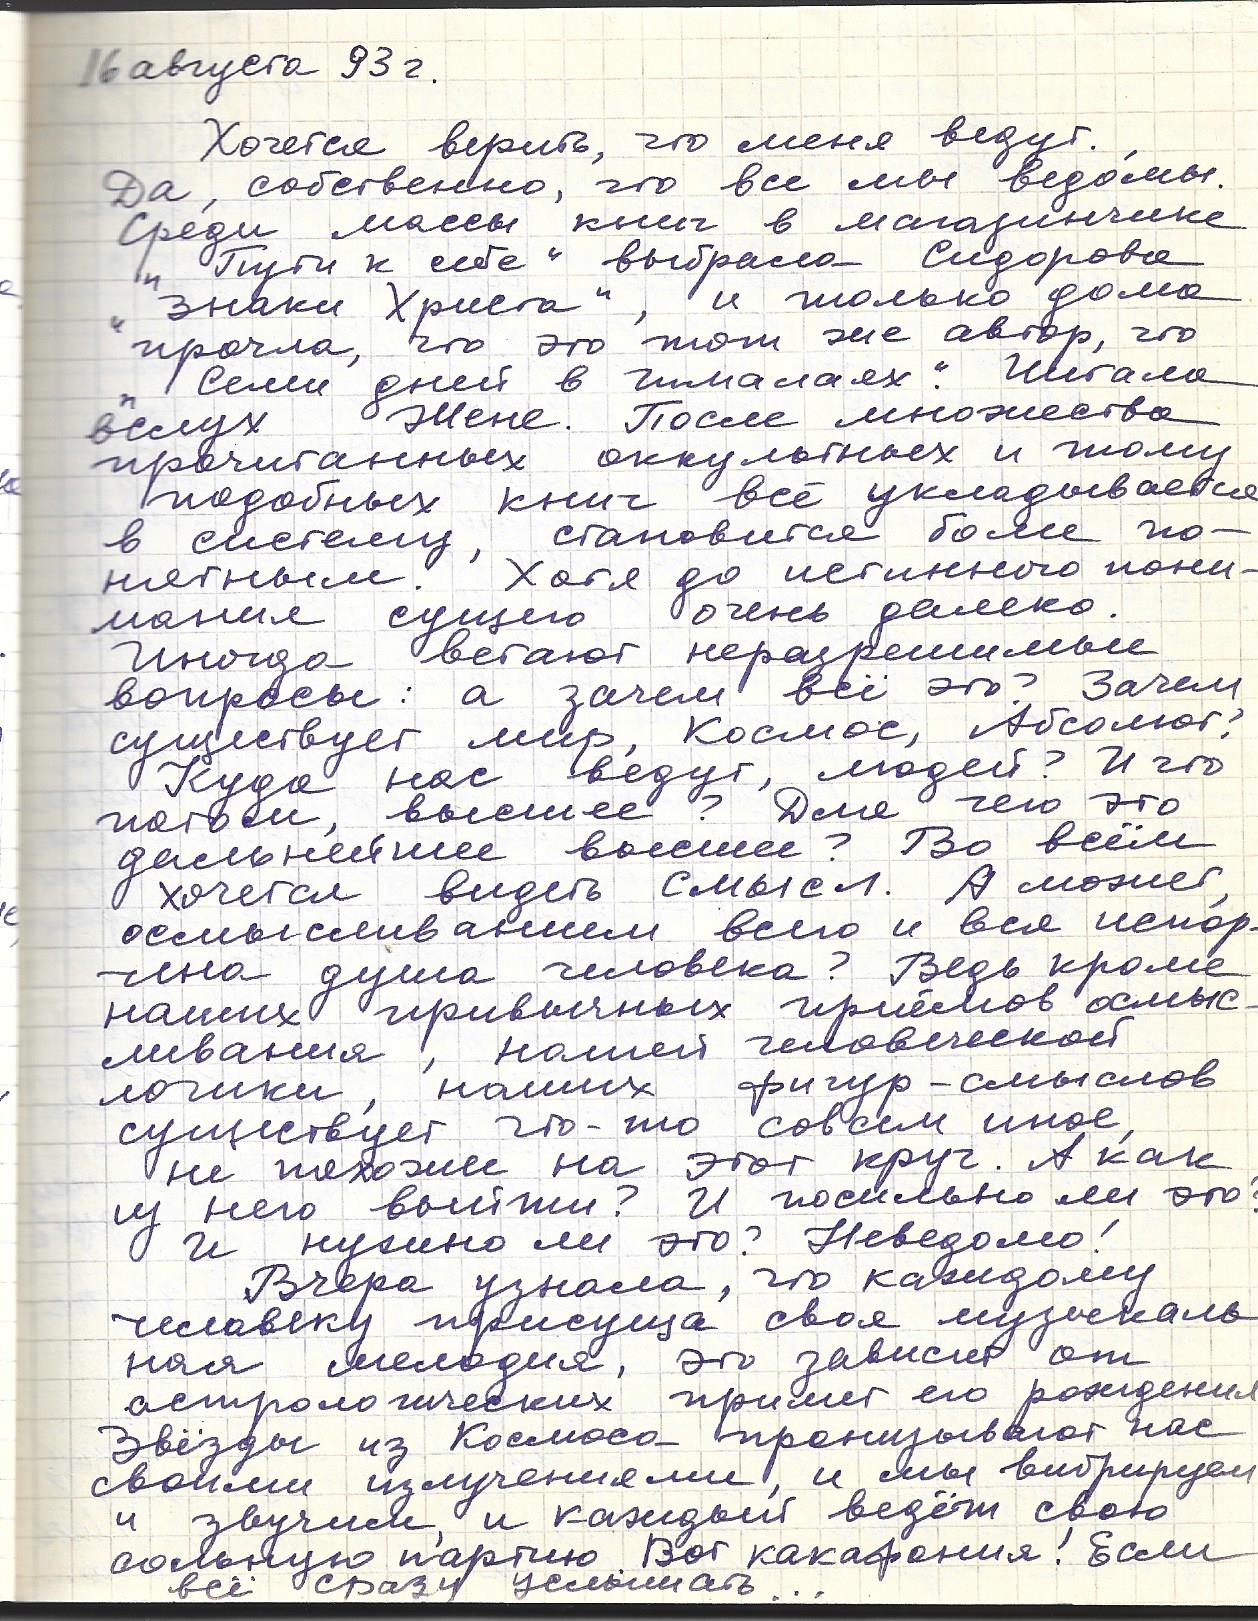 16 августа 93 г.
Хочется верить, что меня ведут.
Да, собственно, что все мы ведомы.
Среди массы книг в магазинчике
„Пути к себе“ выбрала Сидорова
„Знаки Христа“, и только дома
прочла, что это тот же автор, что
„Семи дней в Гималаях“. Читала
вслух Жене. После множества
прочитанных оккультных и тому
подобных книг всё укладывается
в систему, становится более по-
нятным. Хотя до истинного пони-
мания сущего очень далеко.
Иногда встают неразрешимые
вопросы: а зачем всё это? Зачем
существует мир, Космос, Абсолют?
Куда нас ведут, людей? И что
потом, высшее? Для чего это
дальнейшее высшее? Во всём
хочется видеть смысл. А может,
осмысливанием всего и вся испор-
чена душа человека? Ведь кроме
наших привычных приёмов осмыс-
ливания, нашей человеческой
логики, наших фигур-смыслов
существует что-то совсем иное,
не похожее на этот круг. А как
из него выйти? И посильно ли это?
И нужно ли это? Неведомо!
Вчера узнала, что каждому
человеку присуща своя музыкаль
ная мелодия, это зависит от
астрологических примет его рождения
Звёзды из Космоса пронизывают нас
своими излучениями, и мы вибрируем
и звучим, и каждый ведёт свою
сольную партию. Вот какафония! Если
всё сразу услышать...